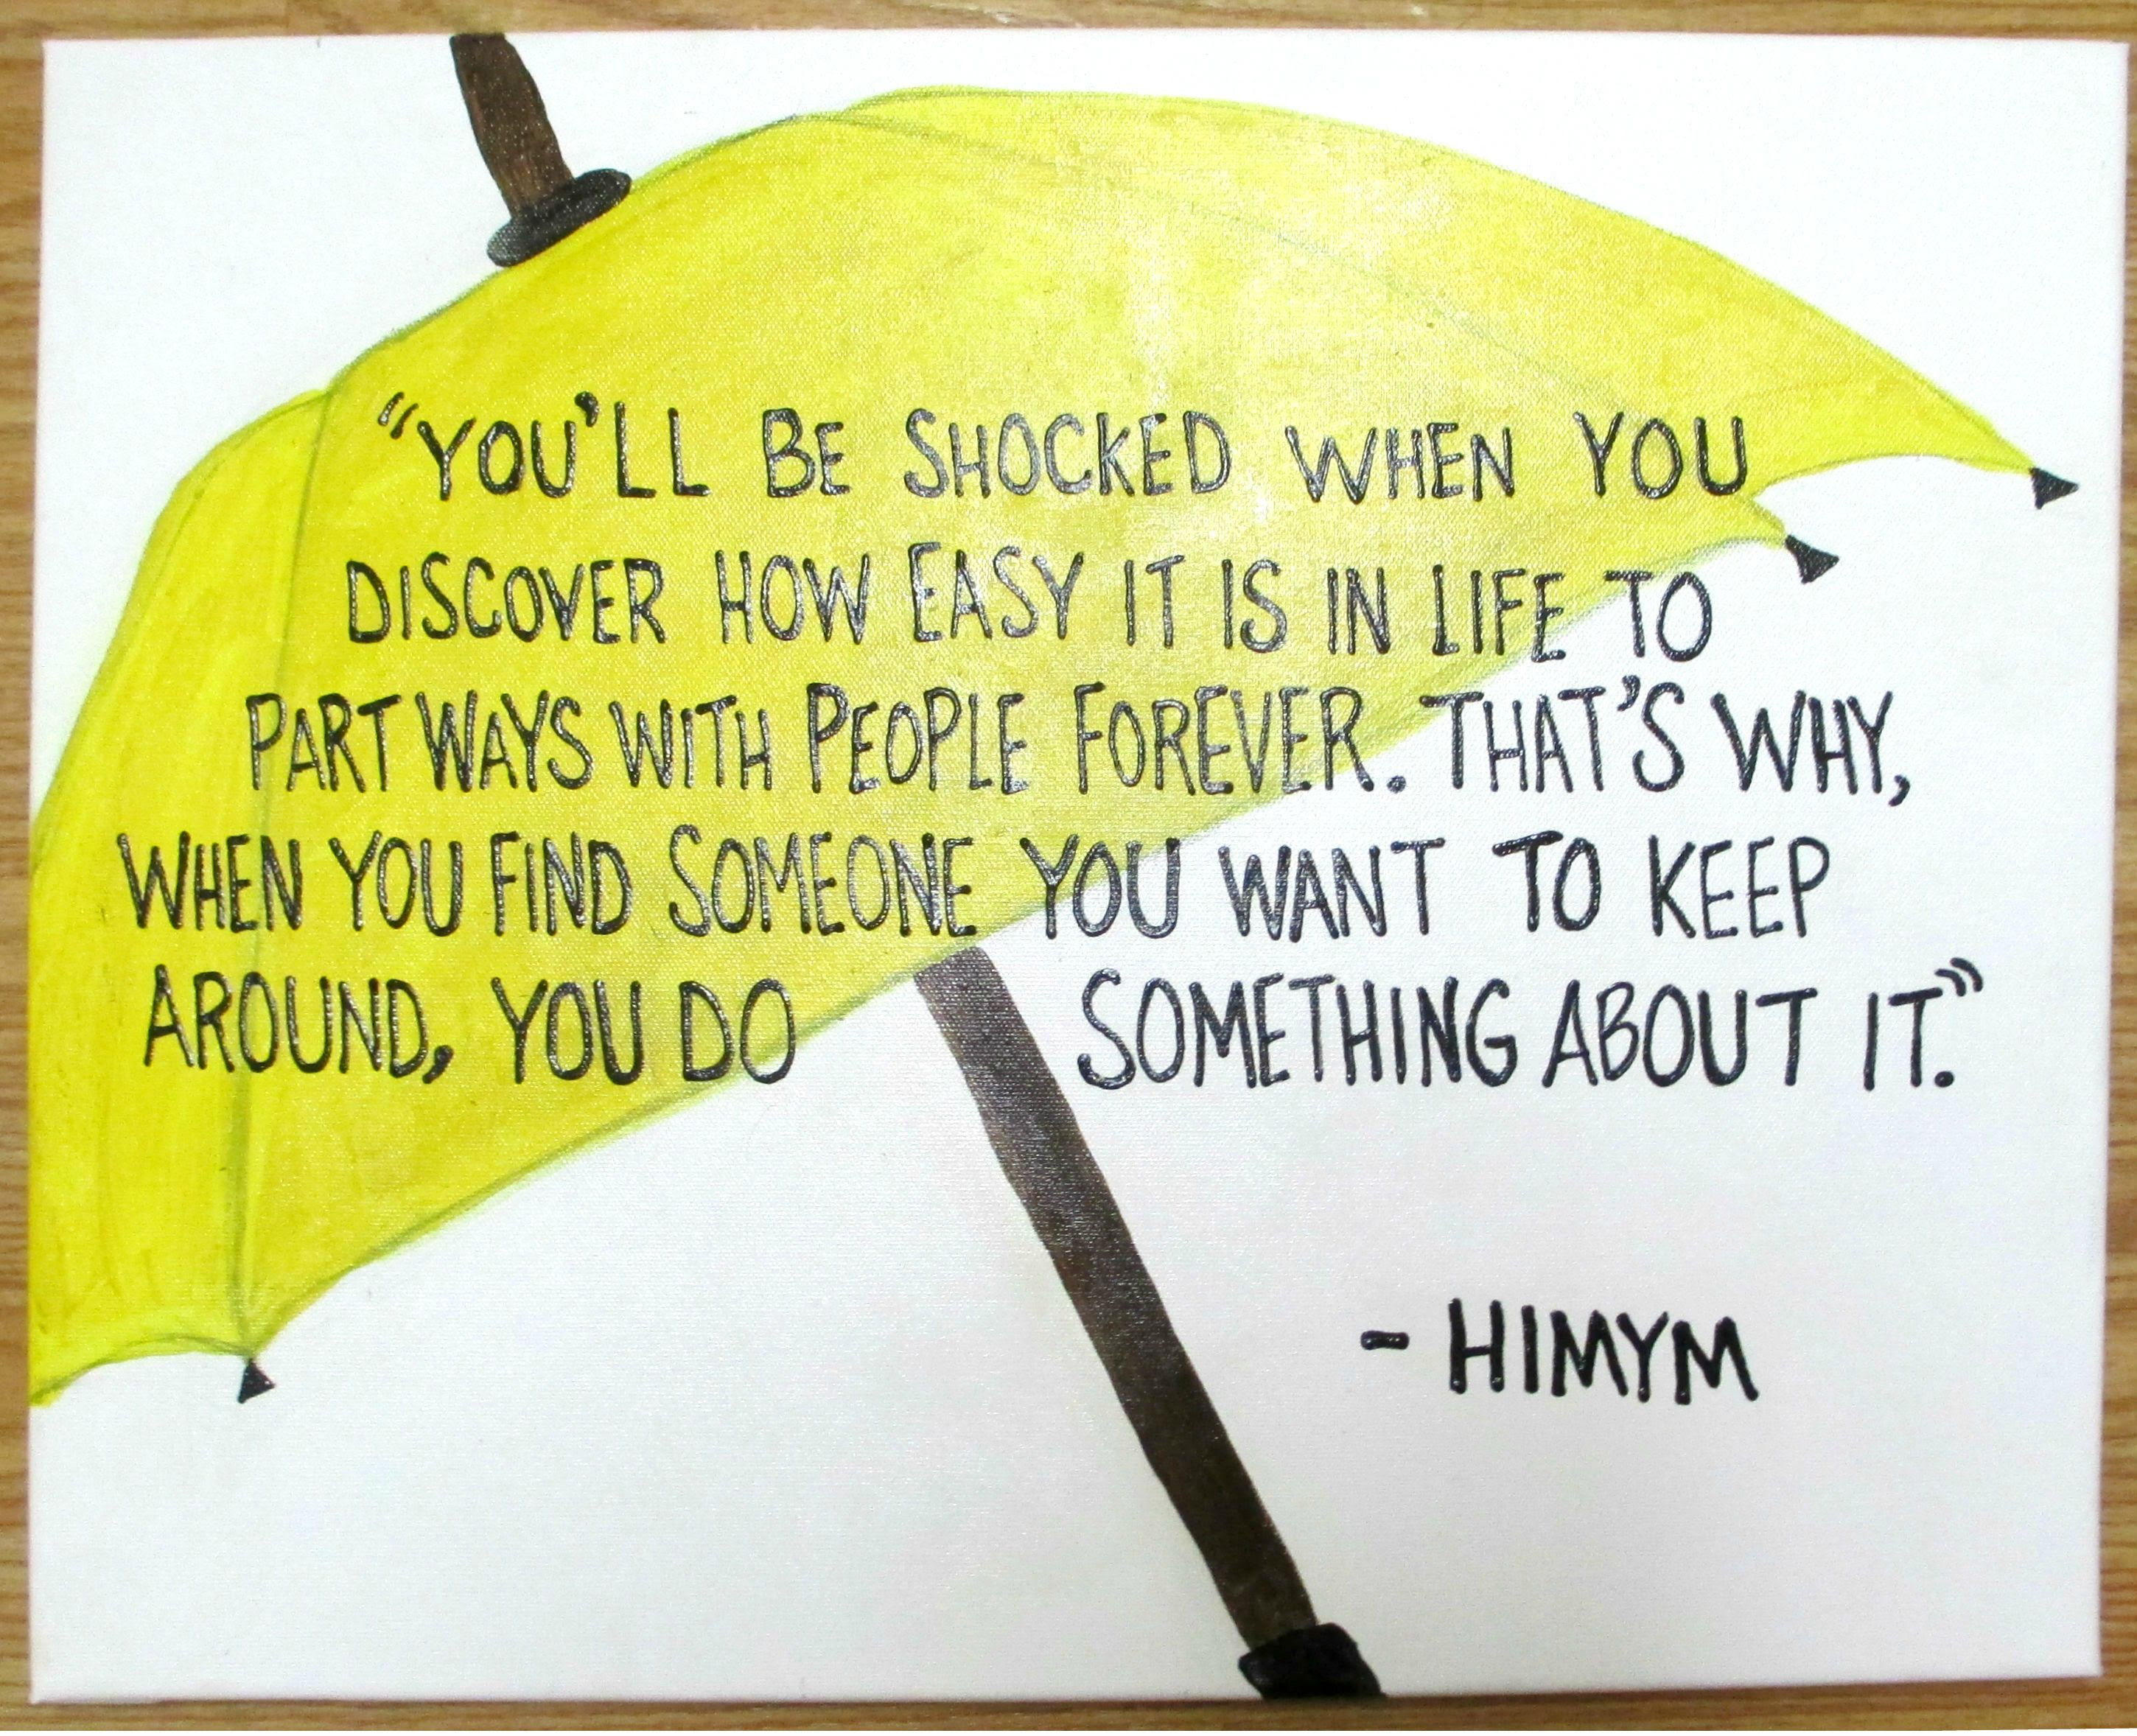 "YOU'LL BE SHOCKED WHEN YOU
DISCOVER HOW EASY IT IS IN LIFE TO
PART WAYS WITH PEOPLE FOREVER. THAT'S WHY,
WHEN YOU FIND SOMEONE YOU WANT TO KEEP
AROUND, YOU DO SOMETHING ABOUT IT."
- HIMYM